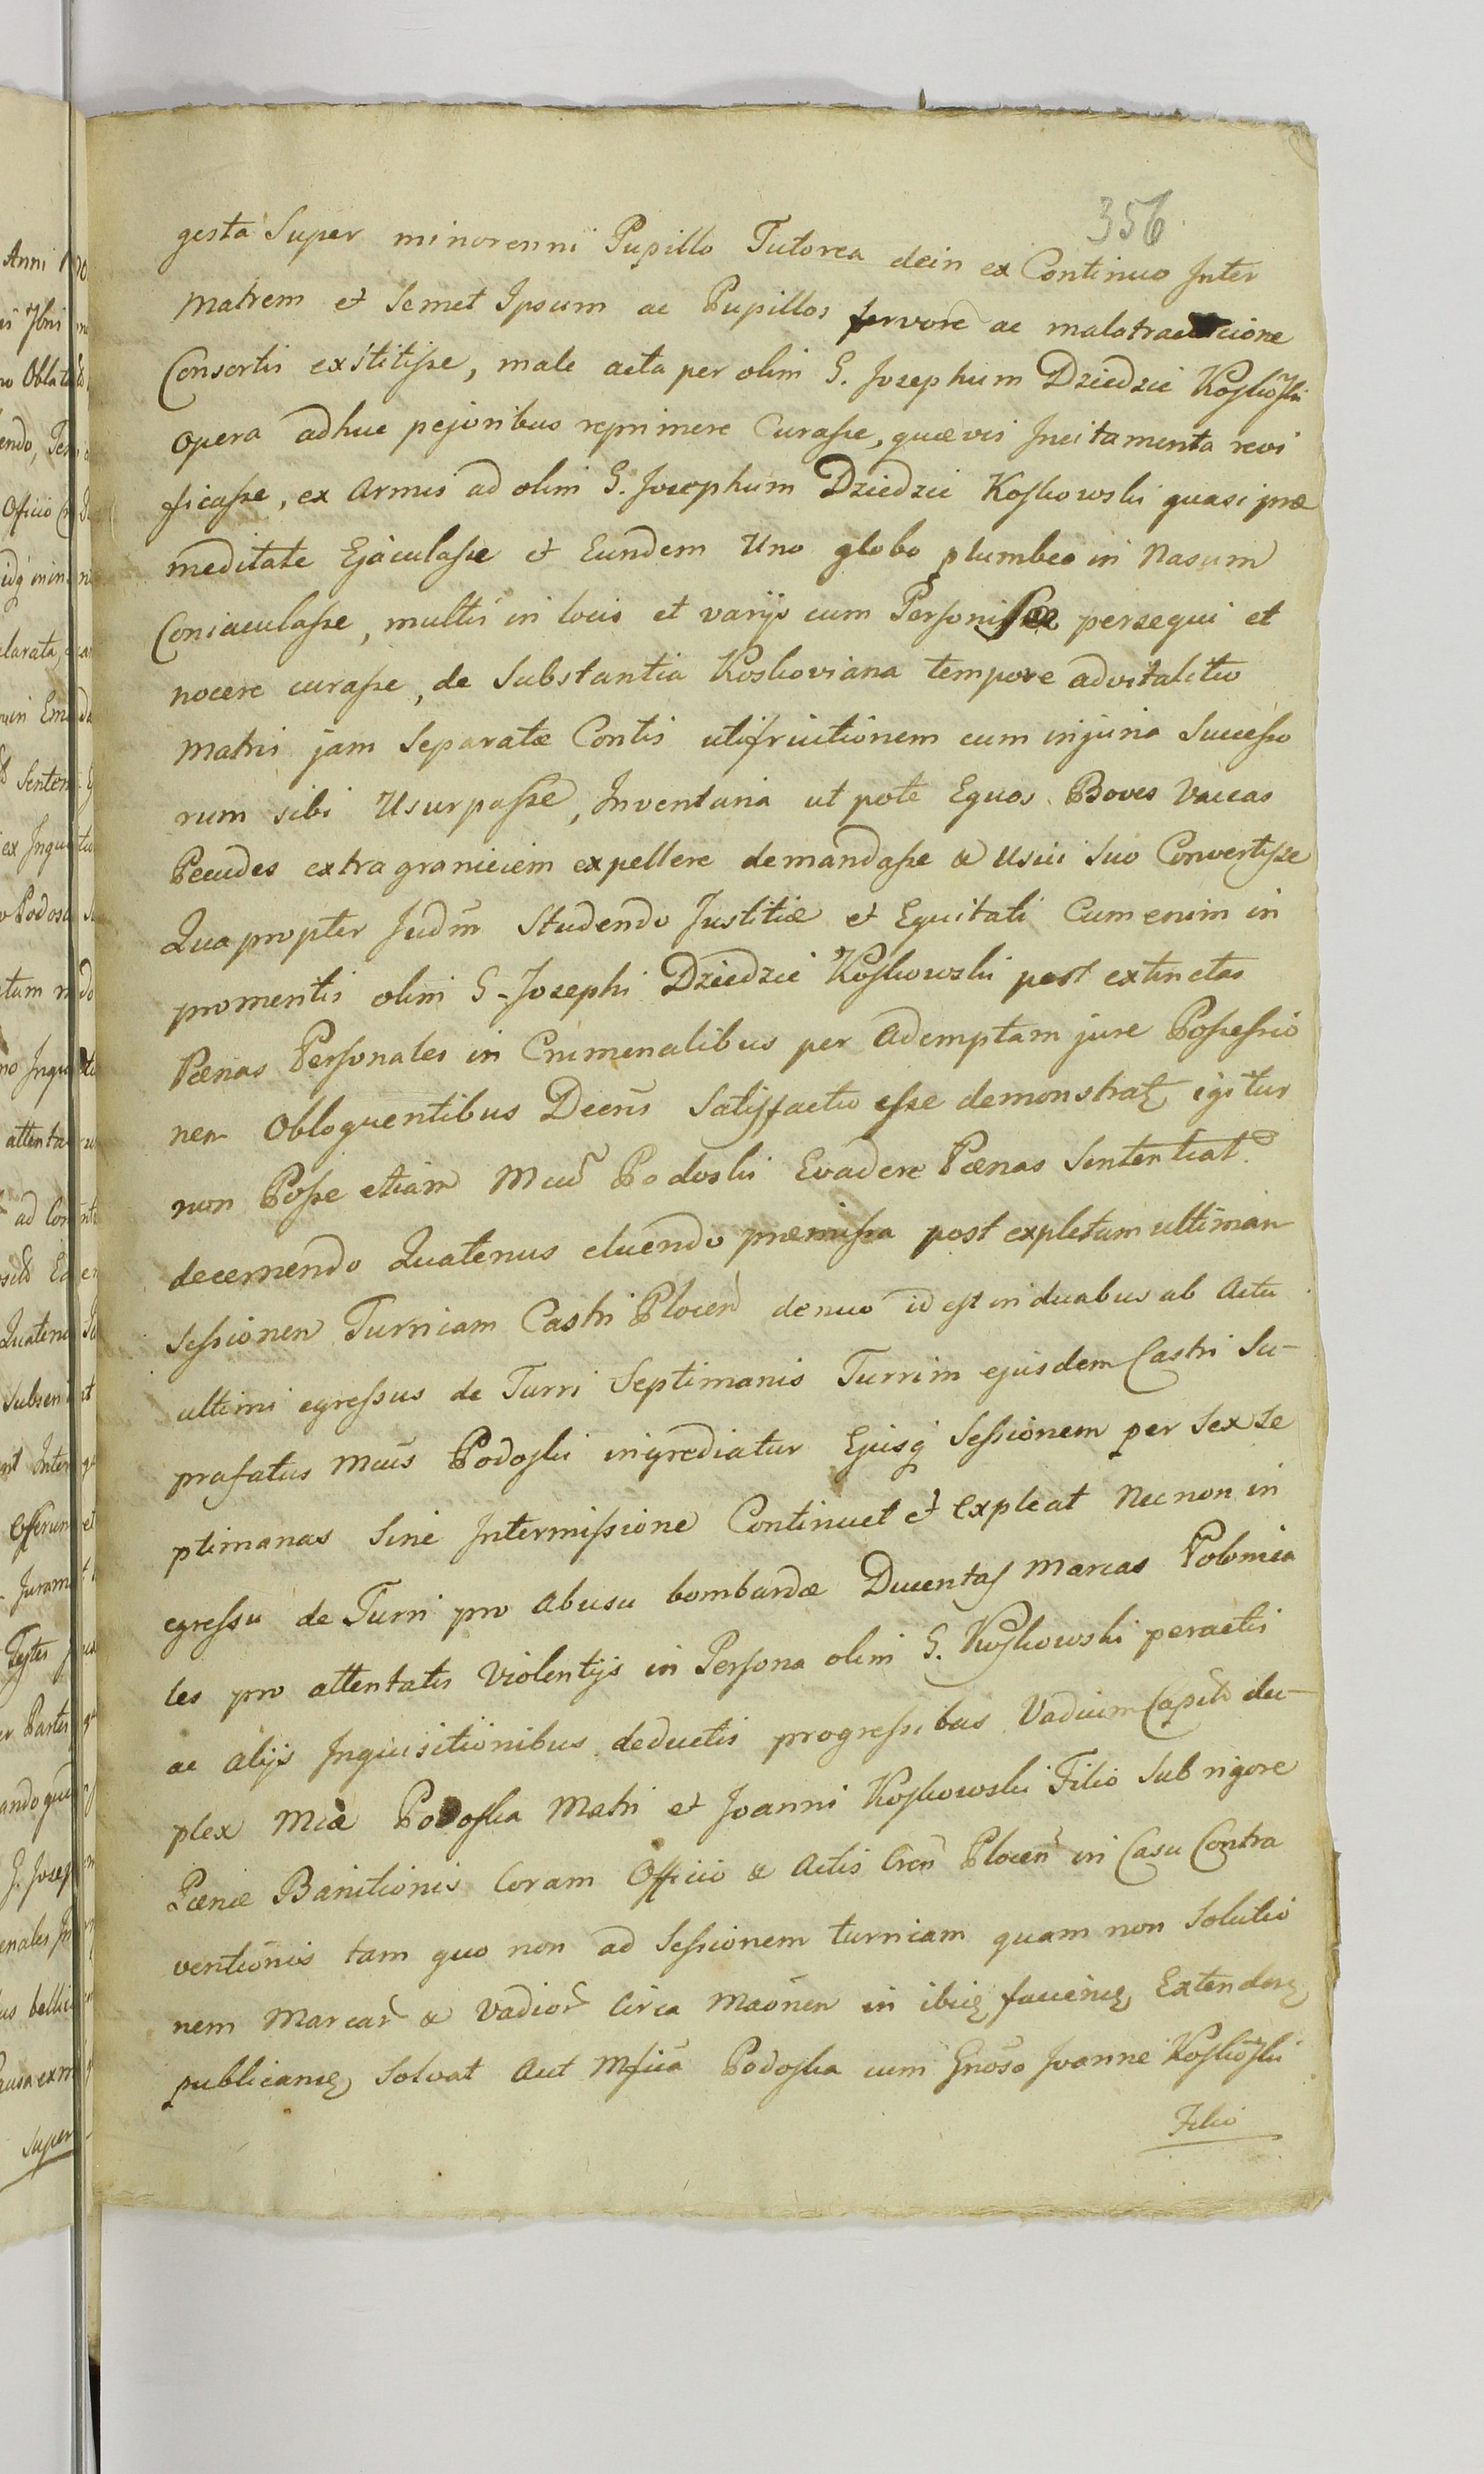 356
gesta Super minorenni Pupillo Tutorea dein ex Continuo Inter
Matrem et Semet Ipsum ac Pupillos fervore ac malotractacione
Consortis exstitisse, male acta per olim G. Josephum Dziedzic Koskoski
opera adhuc pejoribus reprimere Curasse, quævis Incitamenta revi
ficasse, ex Armis ad olim G. Josephum Dziedzic Koskowski quasi præ
meditate Ejaculasse et Eundem Uno globo plumbeo in Nasum
Coniaculasse, multis in locis et varijs cum Personis se persequi et
nocere curasse, de Substantia Koskoviana tempore advitalitio
Matri jam Separatæ Contis utifruitionem cum injuria Successo
rum sibi Usurpasse, Inventaria ut pote Equos Boves Vaccas
Pecudes extra graniciem expellere demandasse & Usui Suo Convertisse
Qua propter Judm Studendo Justitiæ et Equitati Cum enim in
promeritis olim G. Josephi Dziedzic Koskowski post extinctas
Pænas Personales in Crimenalibus per Ademptam jure Possessio
nem Obloquentibus Decris Satisfactio esse demonstrat igitur
non Posse etiam Mcum Podoski Evadere Pænas Sententiat
decernendo Quatenus eluendo præmissa post expletam ultiman
Sessionem Turricam Castri Plocen denuo id est in duabus ab Actu
ultimi egressus de Turri Septimanis Turrim ejusdem Castri Su-
prafatus Mcus Podoski ingrediatur Ejusq Sessionem per Sex Se
ptimanas Sine Intermissione Continuet et Expleat Necnon in
egressu de Turri pro Abusu bombardæ Ducentas Marcas Polonica
les pro attentatis Violentijs in Persona olim G. Koskowski peractis
ac alijs Inquisitionibus deductis progressibus Vadium Capitis du-
plex Mcæ Podoska Matri et Joanni Koskowski Filio Sub rigore
Pænæ Banitionis Coram Officio & Actis Cren Plocen in Casu Contra
ventionis tam quo non ad Sessionem turricam quam non Solutio
nem Marcar & Vadior Circa Maonem in ibiq faciend Extendend
publicand Solvat Aut Mfica Podoska cum Gnoso Joanne Koskoski
Filio